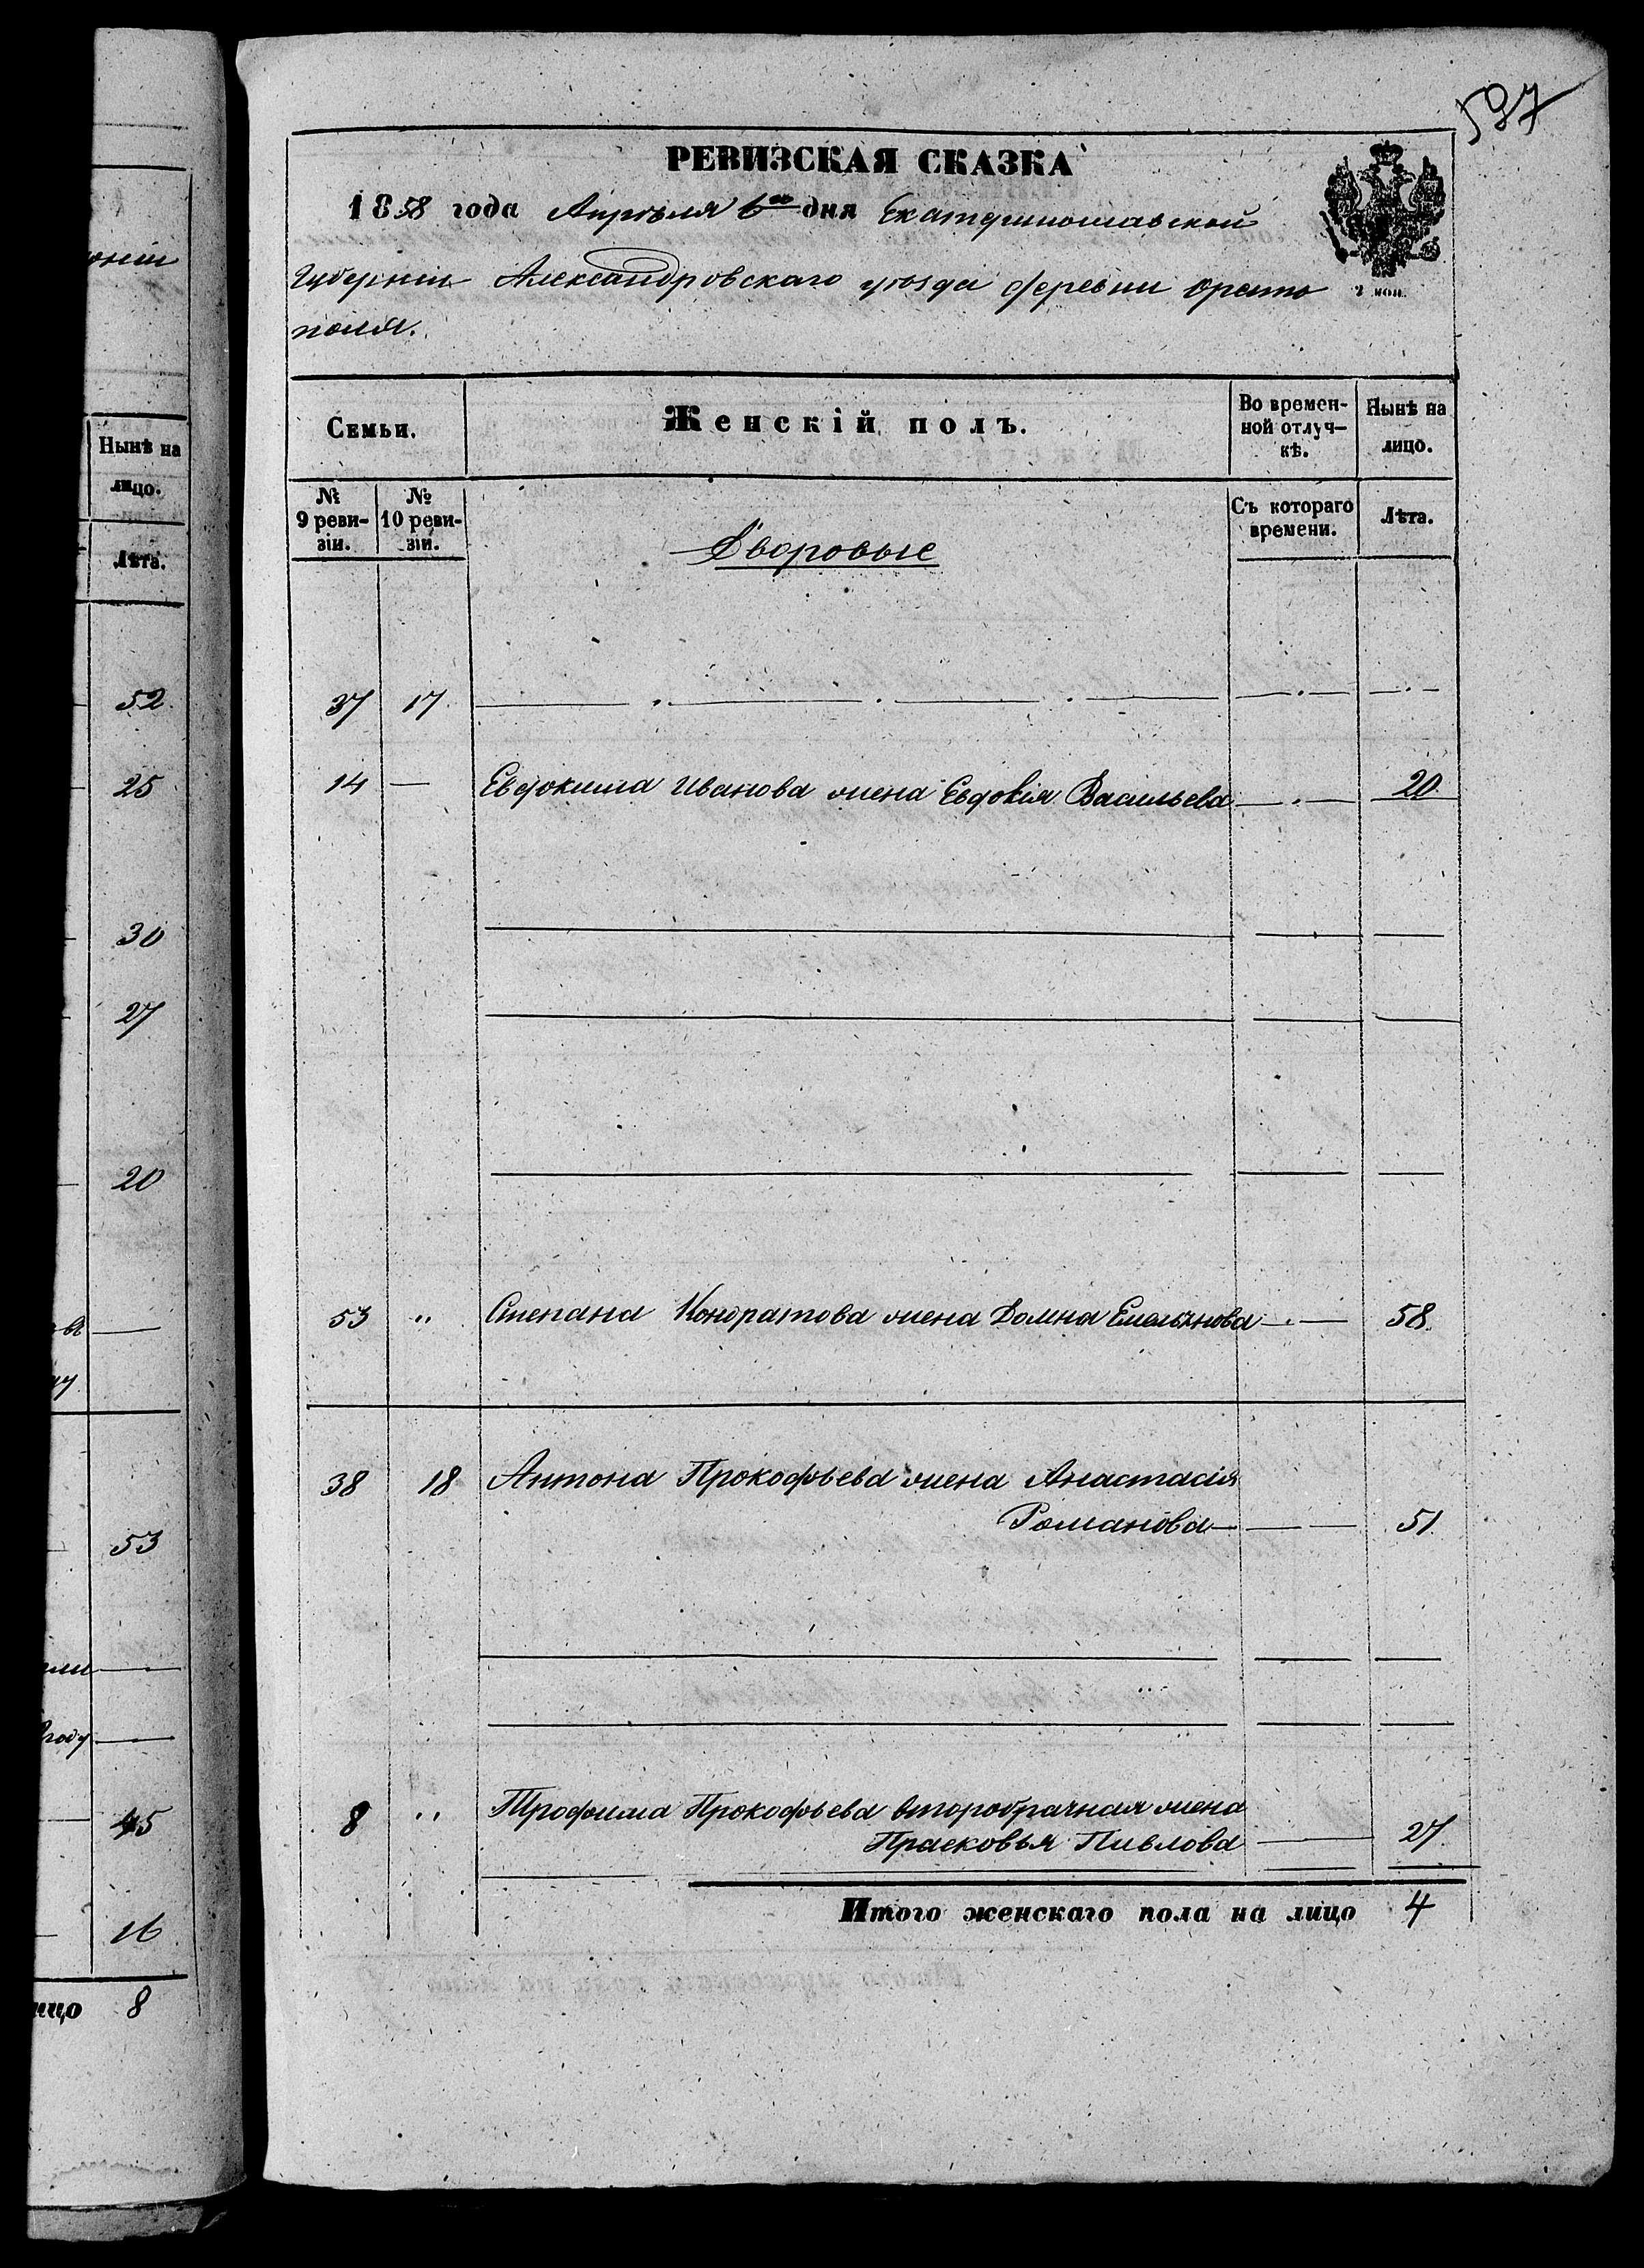 587
РЕВИЗСКАЯ СКАЗКА
1858 года Апрѣля 6го дня Екатеринославской
Губерніи Александровскаго уѣзда деревни Орѣто
поля.
Семьи.
Женскій полъ.
Во времен-
ной отлуч-
кѣ.
Нынѣ на
лицо.
№
9 реви-
зіи.
№
10 реви-
зіи.
Съ котораго
времени.
Лѣта.
Дворовые
37 17
14 — Евдокима Иванова жена Евдокія Васильева 20
53 " Степана Кондратова жена Домна Емельянова 58
38 18 Антона Прокофьева жена Анастасія
Романова 51
8 " Трофима Прокофьева второбрачная жена
Прасковья Павлова 27
Итого женскаго пола на лицо 4
Нынѣ на
лицо.
Лѣта.
52
25
30
27
20
53
году
45
16
8